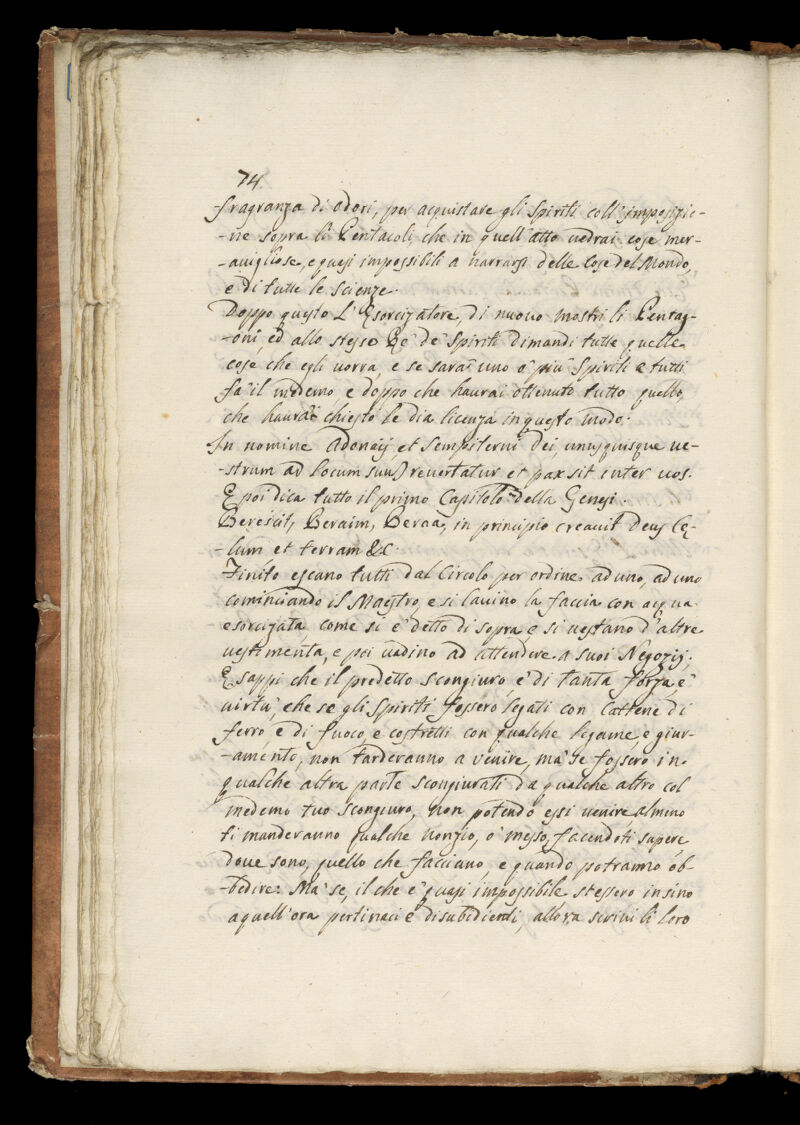 74.
fragranza di odori, per acquistare gli Spiriti coll'imposizio-
-ne sopra li Pentacoli, che in quell'atto vedrai cose mer-
-avigliose, e quasi impossibili a narrarsi delle Cose del Mondo,
e di tutte le scienze.
Doppo questo L'Esorcizatore, di nuovo mostri li Pentag-
-oni, ed allo stesso Rè de' Spiriti dimandi tutte quelle
cose che egli vorrà, e se sarà uno ò più Spiriti e tutti
fà il medemo e doppo che haurai ottenuto tutto quello,
che haurai chiesto le dia licenza in questo modo:
In nomine Adonaij et sempiterni Dei, unusquisque ve-
-strum ad locum suu) revertatur et pax sit inter vos.
E poi dica tutto il primo Capitolo della Genesi.
Berescit, Beraim, Beraa, in principio creavit Deus Cę-
-lum, et terram &c.
Finito escano tutti dal Circolo per ordine, ad uno, ad uno
cominciando il Maestro, e si lavino la faccia con acqua
esorcizata, come si è detto di sopra, e si vestano d'altre
vestimenta, e poi vadino ad attendere a suoi Negozij;
E sappi che il predetto scongiuro, è di tanta forza, e
virtù, che se gli Spiriti fossero legati con Cattene di
ferro e di fuoco, e costretti con qualche legame, e giur-
-amento, non tarderanno a venire, mà se fossero in
qualche altra parte scongiurati da qualche altro col
medemo tuo scongiuro, non potendo essi venire, almeno
ti manderanno qualche nonzio, ò messo, facendoti sapere
dove sono, quello che facciano, e quando potranno ob-
-bedire: Mà se, il che è quasi impossibile stessero insino
a quell'ora pertinaci e disubidienti allora scrivi li loro